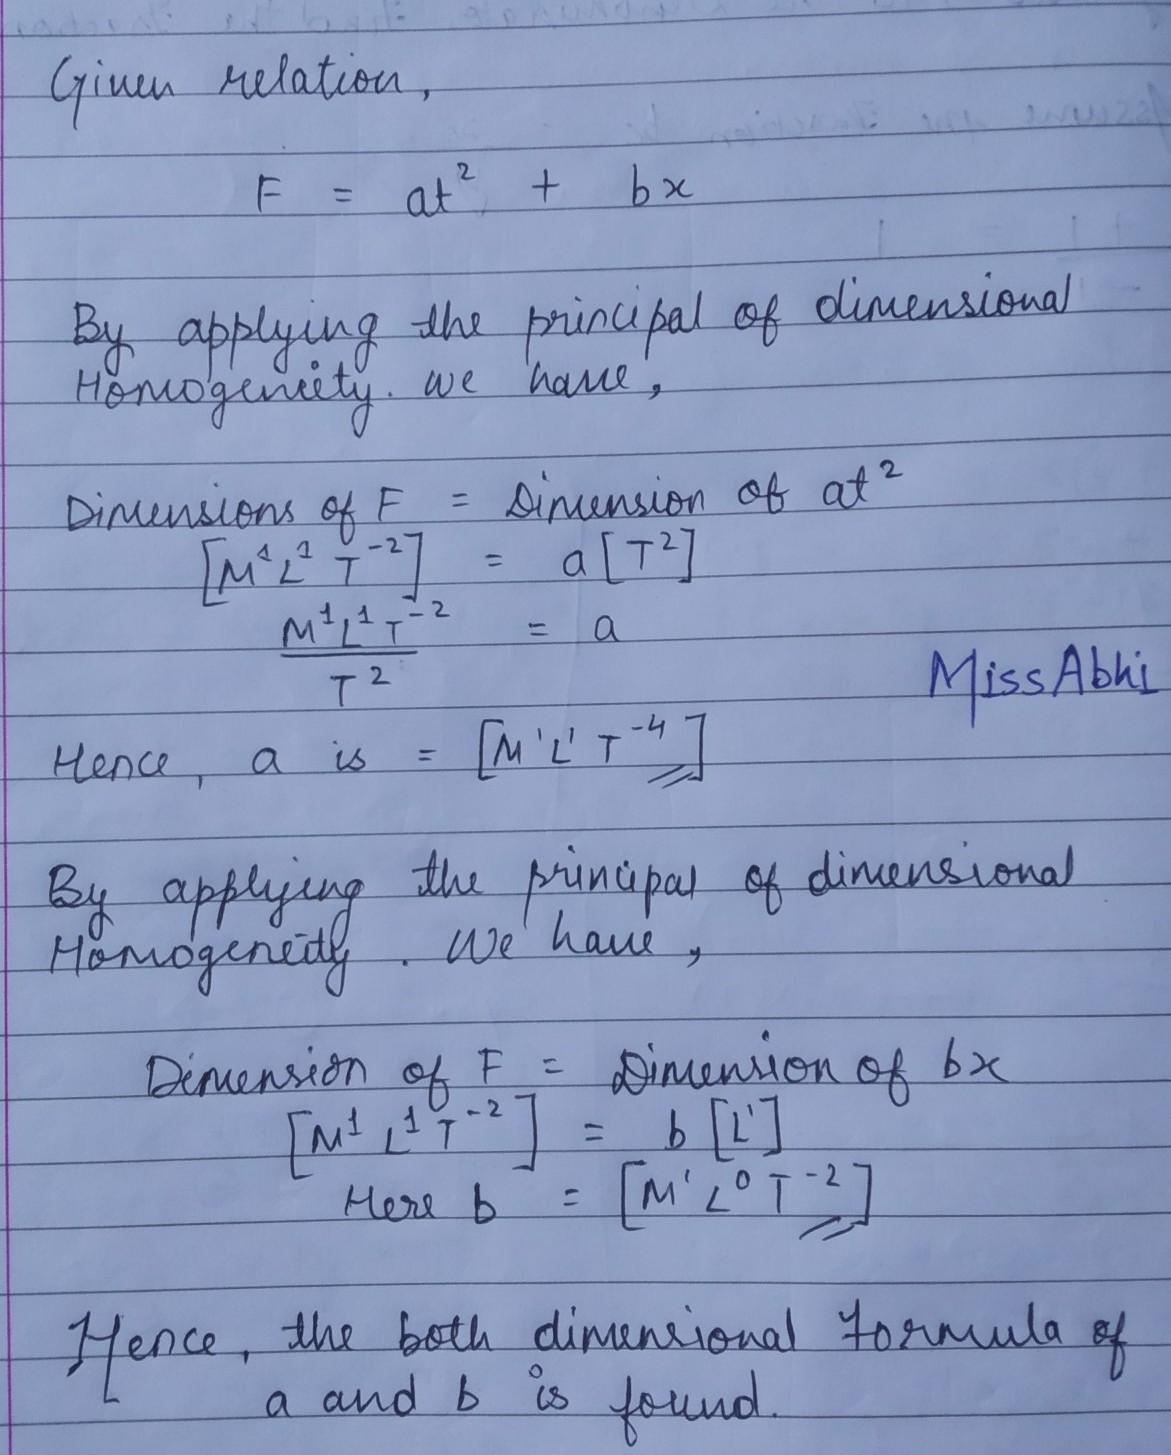 Given relation,
F = at² + bx
By applying the principal of dimensional
Homogeneity. we have,
Dimensions of F = Dimension of at²
[M¹L¹T⁻²] = a[T²]
M¹L¹T⁻² = a
T²
MissAbhi
Hence, a is = [M¹L¹T⁻⁴]
By applying the principal of dimensional
Homogeneity. We have,
Dimension of F = Dimension of bx
[M¹L¹T⁻²] = b[L¹]
Here b = [M¹L⁰T⁻²]
Hence, the both dimensional formula of
a and b is found.